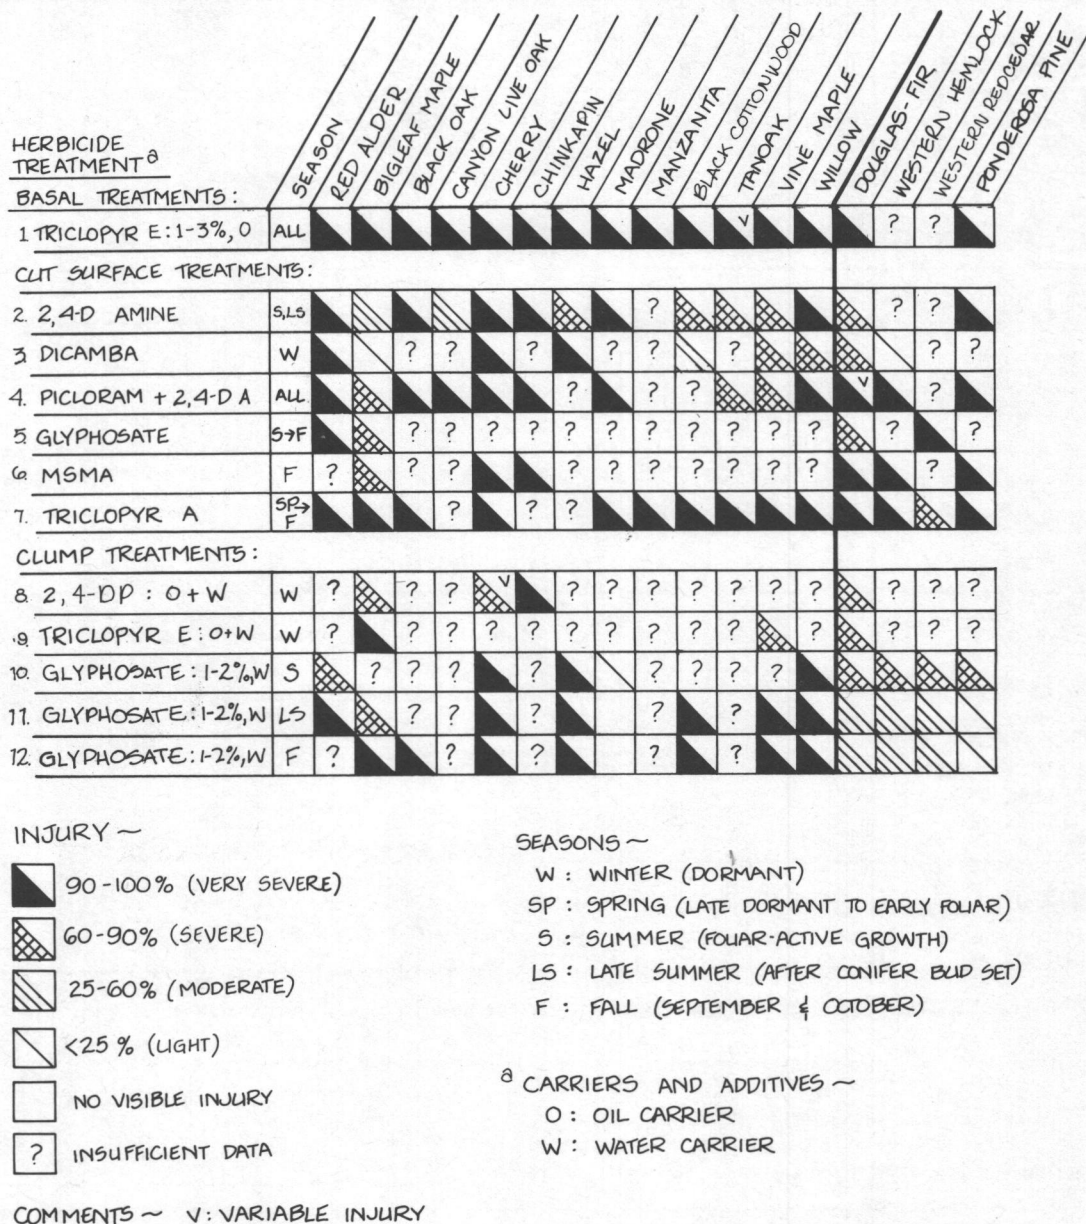 SEASON
RED ALDER
BIGLEAF MAPLE
BLACK OAK
CANYON LIVE OAK
CHERRY
CHINKAPIN
HAZEL
MADRONE
MANZANITA
BLACK COTTONWOOD
TANOAK
VINE MAPLE
WILLOW
DOUGLAS-FIR
WESTERN HEMLOCK
WESTERN REDCEDAR
PONDEROSA PINE
HERBICIDE
TREATMENT a
BASAL TREATMENTS:
1. TRICLOPYR E: 1-3%, O ALL V ? ?
CUT SURFACE TREATMENTS:
2. 2,4-D AMINE S,LS ? ? ?
3. DICAMBA W ? ? ? ? ? ? ? ?
4. PICLORAM + 2,4-D A ALL ? ? ? V ?
5. GLYPHOSATE S→F ? ? ? ? ? ? ? ? ? ? ? ? ?
6. MSMA F ? ? ? ? ? ? ? ? ? ? ? ?
7. TRICLOPYR A SP→F ? ? ?
CLUMP TREATMENTS:
8. 2,4-DP : O + W W ? ? ? V ? ? ? ? ? ? ? ? ? ?
9. TRICLOPYR E: O+W W ? ? ? ? ? ? ? ? ? ? ? ? ? ?
10. GLYPHOSATE: 1-2%, W S ? ? ? ? ? ? ? ?
11. GLYPHOSATE: 1-2%, W LS ? ? ? ? ?
12. GLYPHOSATE: 1-2%, W F ? ? ? ? ?
INJURY ~
90-100% (VERY SEVERE)
60-90% (SEVERE)
25-60% (MODERATE)
<25 % (LIGHT)
NO VISIBLE INJURY
? INSUFFICIENT DATA
COMMENTS ~ V: VARIABLE INJURY
SEASONS ~
W : WINTER (DORMANT)
SP : SPRING (LATE DORMANT TO EARLY FOLIAR)
S : SUMMER (FOLIAR-ACTIVE GROWTH)
LS : LATE SUMMER (AFTER CONIFER BUD SET)
F : FALL (SEPTEMBER & OCTOBER)
a CARRIERS AND ADDITIVES ~
O : OIL CARRIER
W : WATER CARRIER